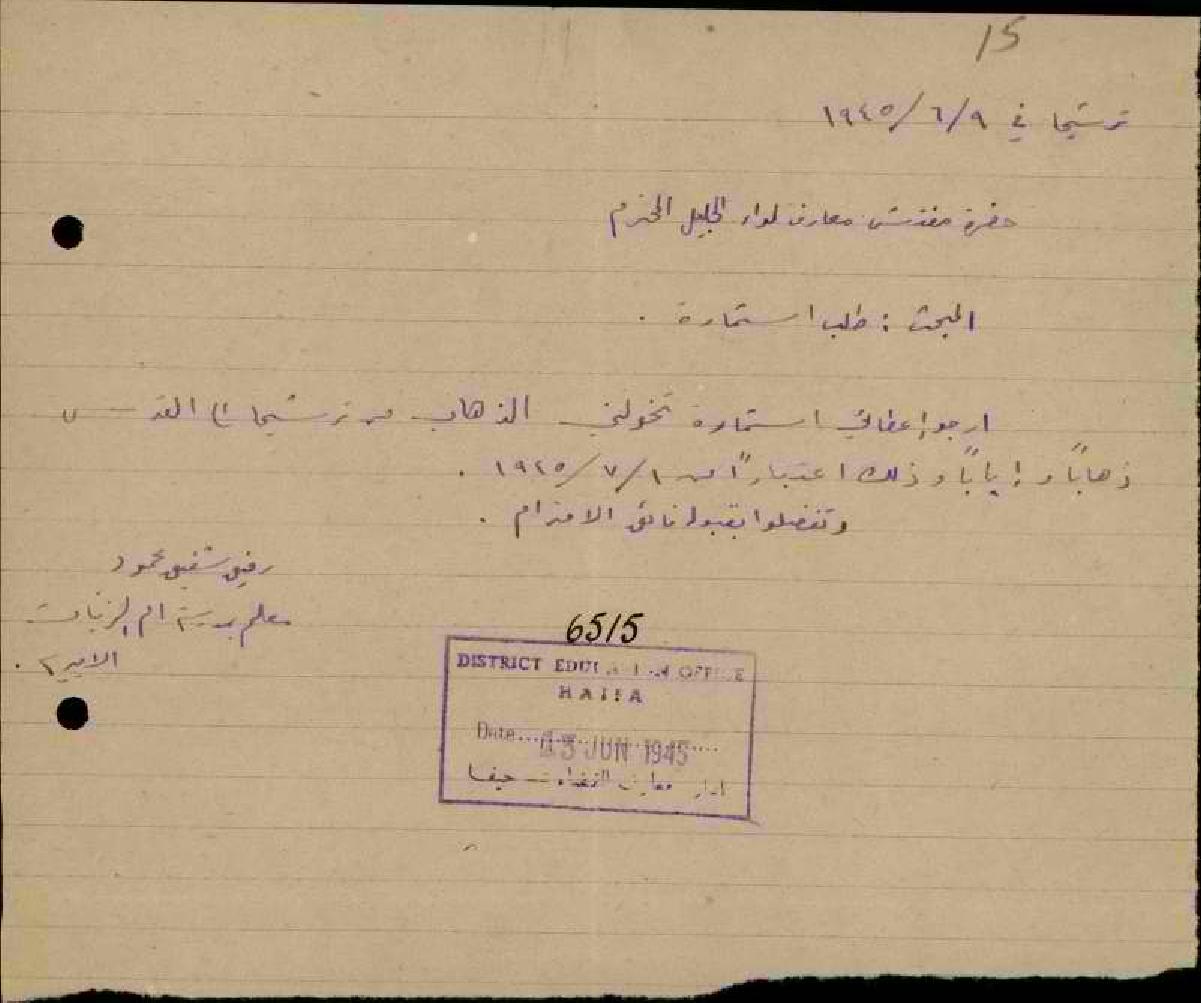 15
ترشيحا في ٩/٦/١٩٤٥
حضرة مفتش معارف لواء الجليل المحترم
المبحث : طلب استمارة .
ارجو إعطائي استمارة تخولني الذهاب من ترشيحا الى القدس
ذهاباً و إياباً و ذلك اعتباراً من ١/٧/١٩٤٥ .
وتفضلوا بقبول فائق الاحترام .
رفيق شفيق محمود
معلم بمدرسة ام الزينات
الاميرية .
6515
DISTRICT EDUCATION OFFICE
HAIFA
Date 13 JUN 1945
معارف القضاء حيفا